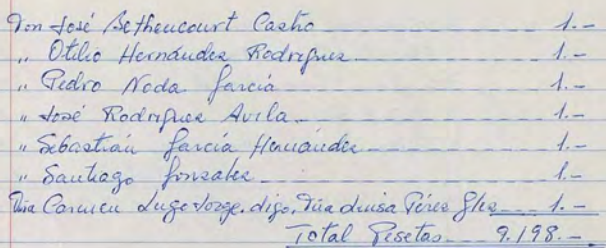 Don José Bethencourt Castro 1.-
" Otilio Hernández Rodríguez 1.-
" Pedro Noda García 1.-
" José Rodríguez Avila 1.-
" Sebastián García Hernández 1.-
" Santiago González 1.-
Dña Carmen Lugo Jorge. digo. Dña Luisa Pérez Glez 1.-
Total Pesetas 9.198.-